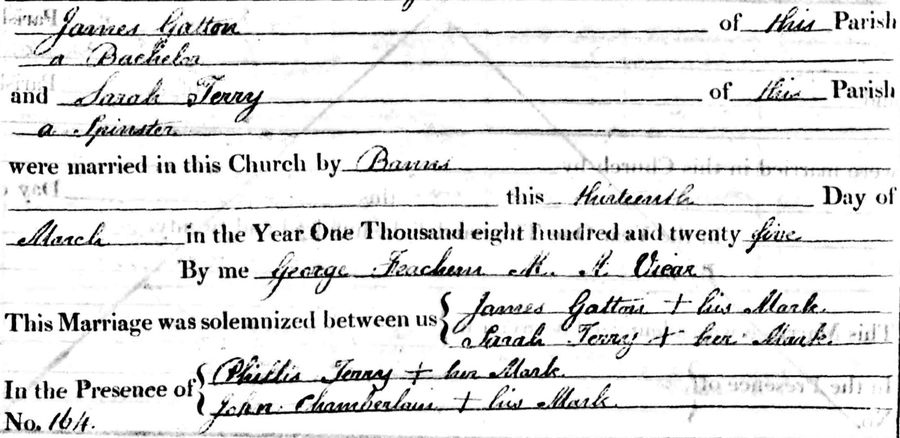 James Gatton of this Parish
a Bachelor
and Sarah Terry of this Parish
a Spinster
were married in this Church by Banns
this thirteenth Day of
March in the Year One Thousand eight hundred and twenty five
By me George Feachem M. A Vicar
This Marriage was solemnized between us { James Gatton + his Mark
Sarah Terry + her Mark.
In the Presence of { Phillis Terry + her Mark.
John Chamberlain + his Mark
No. 164.